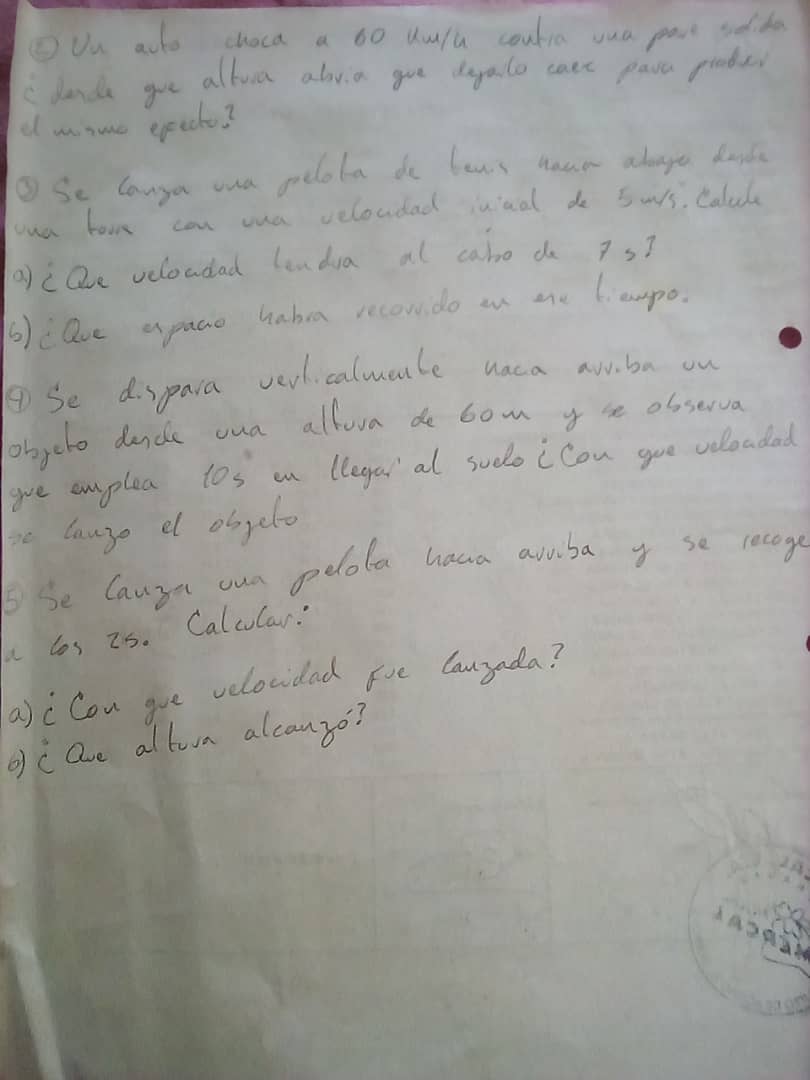 ② Un auto choca a 60 Km/h contra una pare solida
¿ desde que altura abria que dejarlo caer para probar
el mismo efecto?
③ Se lanza una pelota de tenis hacia abajo desde
una torre con una velocidad inicial de 5 m/s. Calcule
a) ¿Que velocidad tendra al cabo de 7 s?
b) ¿Que espacio habra recorrido en ese tiempo.
④ Se dispara verticalmente hacia arriba un
objeto desde una altura de 60m y se observa
que emplea 10s en llegar al suelo ¿Con que velocidad
se lanzo el objeto
5 Se lanza una pelota hacia arriba y se recoge
a los 2s. Calcular:
a) ¿Con que velocidad fue lanzada?
b) ¿Que altura alcanzó?